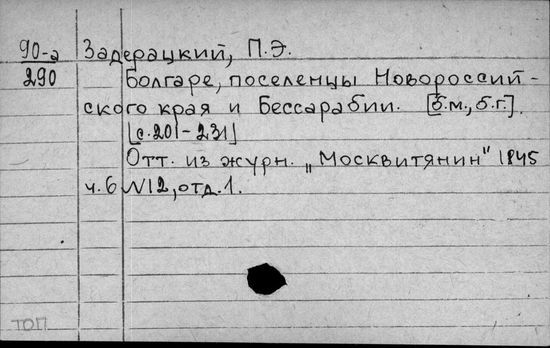 90-а Задерацкий, П.Э.
290 Болгаре, поселенцы Новороссий-
ского края и Бессарабии. [б.м., б.г.].
[с.201-231]
Отт. из журн. „Москвитянин" 1845
ч.6 N12, отд.1.
ТОП